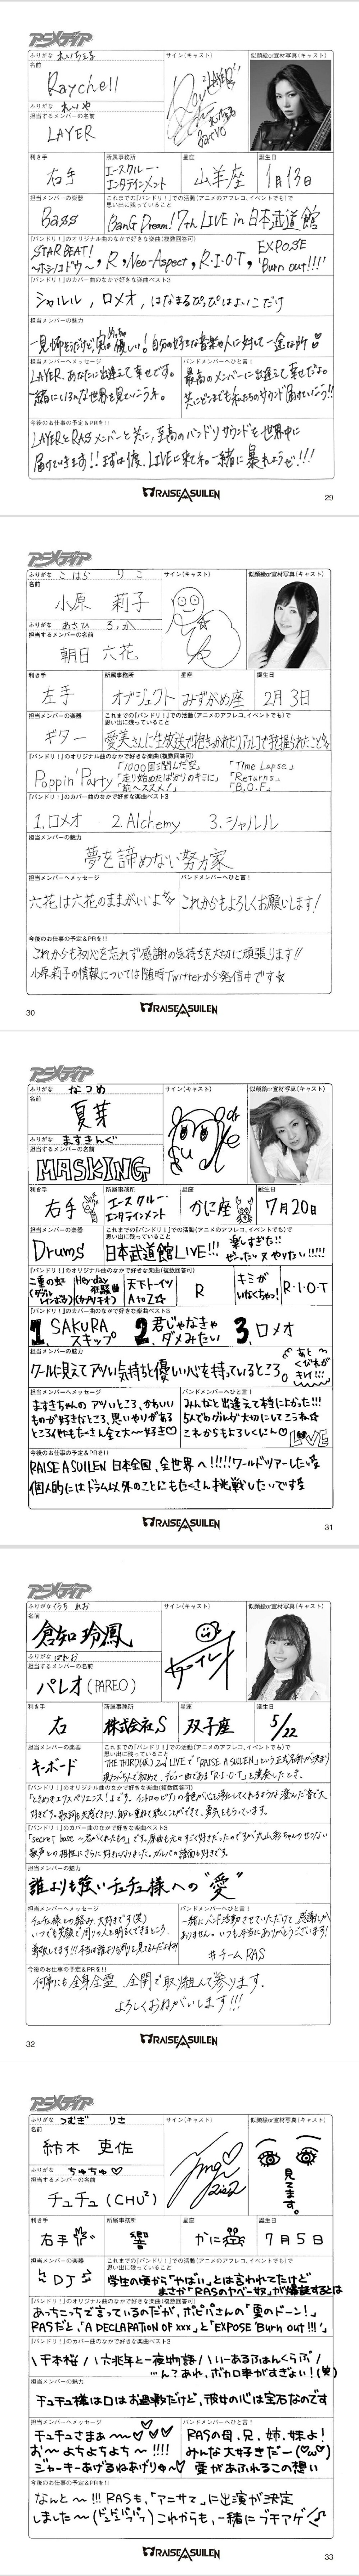 アニメディア
ふりがな れいちぇる
名前
Raychell
ふりがな れいや
担当するメンバーの名前
LAYER
サイン(キャスト)
似顔絵or宣材写真(キャスト)
利き手
右手
所属事務所
エースクルー・
エンタテインメント
星座
山羊座
誕生日
1月13日
担当メンバーの楽器
Bass
これまでの「バンドリ！」での活動(アニメのアフレコ、イベントでも)で
思い出に残っていること
BanG Dream! 7th LIVE in 日本武道館
「バンドリ！」のオリジナル曲のなかで好きな楽曲(複数回答可)
STAR BEAT!
～ホシノコドウ～, R, Neo-Aspect, R・I・O・T, EXPOSE
'Burn out!!!'
「バンドリ！」のカバー曲のなかで好きな楽曲ベスト3
シャルル, ロメオ, はなまるぴっぴはよいこだけ
担当メンバーの魅力
担当メンバーへメッセージ
LAYER. あなたに出逢えて幸せです。
一緒にいろんな世界を見ていこうネ。
バンドメンバーへひと言！
最高のメンバーに出逢えて幸せだよ。
共にどこまでも私たちのサウンド届けていこう!!
今後のお仕事の予定&PRを!!
LAYERとRASメンバーと共に, 至高のバンドリサウンドを世界中に
届けていきます!! まずは是非、LIVEに来てネ。一緒に暴れようぜ!!!
RAISE A SUILEN
29
アニメディア
ふりがな こはら りこ
名前
小原 莉子
ふりがな あさひ ろっか
担当するメンバーの名前
朝日 六花
サイン(キャスト)
似顔絵or宣材写真(キャスト)
利き手
左手
所属事務所
オブジェクト
星座
みずがめ座
誕生日
2月3日
担当メンバーの楽器
ギター
これまでの「バンドリ！」での活動(アニメのアフレコ、イベントでも)で
思い出に残っていること
愛美さんに生放送で抱きつかれたりアフレコで手を握られたこと☆
「バンドリ！」のオリジナル曲のなかで好きな楽曲(複数回答可)
Poppin'Party 「1000回潤んだ空」 「Time Lapse」
「走り始めたばかりのキミに」 「Returns」
「前へススメ！」 「B.O.F」
「バンドリ！」のカバー曲のなかで好きな楽曲ベスト3
1.ロメオ 2.Alchemy 3.シャルル
担当メンバーの魅力
夢を諦めない努力家
担当メンバーへメッセージ
六花は六花のままがいいよ☆
バンドメンバーへひと言！
これからもよろしくお願いします！
今後のお仕事の予定&PRを!!
これからも初心を忘れず感謝の気持ちを大切に頑張ります!!
小原莉子の情報については随時Twitterから発信中です☆
30
RAISE A SUILEN
アニメディア
ふりがな なつめ
名前
夏芽
ふりがな ますきんぐ
担当するメンバーの名前
MASKING
サイン(キャスト)
似顔絵or宣材写真(キャスト)
利き手
右手
所属事務所
エースクルー・
エンタテインメント
星座
かに座
誕生日
7月20日
担当メンバーの楽器
Drums
これまでの「バンドリ！」での活動(アニメのアフレコ、イベントでも)で
思い出に残っていること
日本武道館LIVE!!! 楽しすぎた!!
ぜったいヌやりたい!!!!!
「バンドリ！」のオリジナル曲のなかで好きな楽曲(複数回答可)
二重の虹
(ダブル
レインボウ)
Hey-day
狂騒曲
(カプリチオ)
天下トーイツ
A to Z☆
R
キミが
いなくちゃっ！
R・I・O・T
「バンドリ！」のカバー曲のなかで好きな楽曲ベスト3
1. SAKURA
スキップ
2. 君じゃなきゃ
ダメみたい
3. ロメオ
担当メンバーの魅力
クールに見えてアツい気持ちと優しい心を持っているところ。
あと
くびれが
キレイ!!!
担当メンバーへメッセージ
ますきちゃんのアツいところ、かわいい
ものが好きなところ、思いやりがある
ところ(他にもたくさん)全て大～好き♡
バンドメンバーへひと言！
みんなと出逢えて本当によかった!!!
5人でのグルーヴ大切にしてこうね☆
これからもよろしくにん♡
LOVE
今後のお仕事の予定&PRを!!
RAISE A SUILEN 日本全国、全世界へ!!!!!ワールドツアーしたい☆
個人的にはドラム以外のことにもたくさん挑戦したいです☆
RAISE A SUILEN
31
アニメディア
ふりがな くらち れお
名前
倉知 玲鳳
ふりがな ぱれお
担当するメンバーの名前
パレオ(PAREO)
サイン(キャスト)
似顔絵or宣材写真(キャスト)
利き手
右
所属事務所
株式会社S
星座
双子座
誕生日
5/22
担当メンバーの楽器
キーボード
これまでの「バンドリ！」での活動(アニメのアフレコ、イベントでも)で
思い出に残っていること
THE THIRD(仮) 2nd LIVEで「RAISE A SUILEN」という正式名称が決まり
「バンドリ！」のオリジナル曲のなかで好きな楽曲(複数回答可)
「ときめきエクスペリエンス！」です。イントロのピアノの音色が心を浄化してくれるような澄んだ音で大
「バンドリ！」のカバー曲のなかで好きな楽曲ベスト3
担当メンバーの魅力
誰よりも強いチュチュ様への"愛"
担当メンバーへメッセージ
バンドメンバーへひと言！
一緒にバンド活動させていただけて、感謝しか
ありません。いつも本当にありがとうございます！
#チームRAS
今後のお仕事の予定&PRを!!
何事にも全身全霊、全開で取り組んで参ります。
よろしくおねがいします!!!
32
RAISE A SUILEN
アニメディア
ふりがな つむぎ りさ
名前
紡木 吏佐
ふりがな ちゅちゅ♡
担当するメンバーの名前
チュチュ(CHU²)
サイン(キャスト)
似顔絵or宣材写真(キャスト)
見てます。
利き手
右手
所属事務所
響
星座
かに
誕生日
7月5日
担当メンバーの楽器
DJ
これまでの「バンドリ！」での活動(アニメのアフレコ、イベントでも)で
思い出に残っていること
学生の頃から「やばい」とは言われてたけど
まさか「RASのヤベー奴」が爆誕するとは
「バンドリ！」のオリジナル曲のなかで好きな楽曲(複数回答可)
あっちこっちで言っているのだが、ポピパさんの「夏のドーン！」
RASだと、「A DECLARATION OF ×××」と「EXPOSE 'Burn out!!!'」
「バンドリ！」のカバー曲のなかで好きな楽曲ベスト3
\千本桜/ \六兆年と一夜物語/ \いーあるふぁんくらぶ/
…ん？あれ、ボカロ率がすぎょい！(笑)
担当メンバーの魅力
チュチュ様は口はお過激だけど、彼女の心は宝石なのです
担当メンバーへメッセージ
チュチュさまぁ～～♡♡♡
お～よちよちよち～!!!!
ジャーキーあげるねあげりゅ～♡
バンドメンバーへひと言！
RASの母、兄、姉、妹よ！
みんな大好きだー(♡ω♡)
愛があふれるこの想い
今後のお仕事の予定&PRを!!
なんと～!!! RASも、「アニサマ」に出演が決定
しました～(ドンドンパフパフ) これからも、一緒にブチアゲ♪
RAISE A SUILEN
33